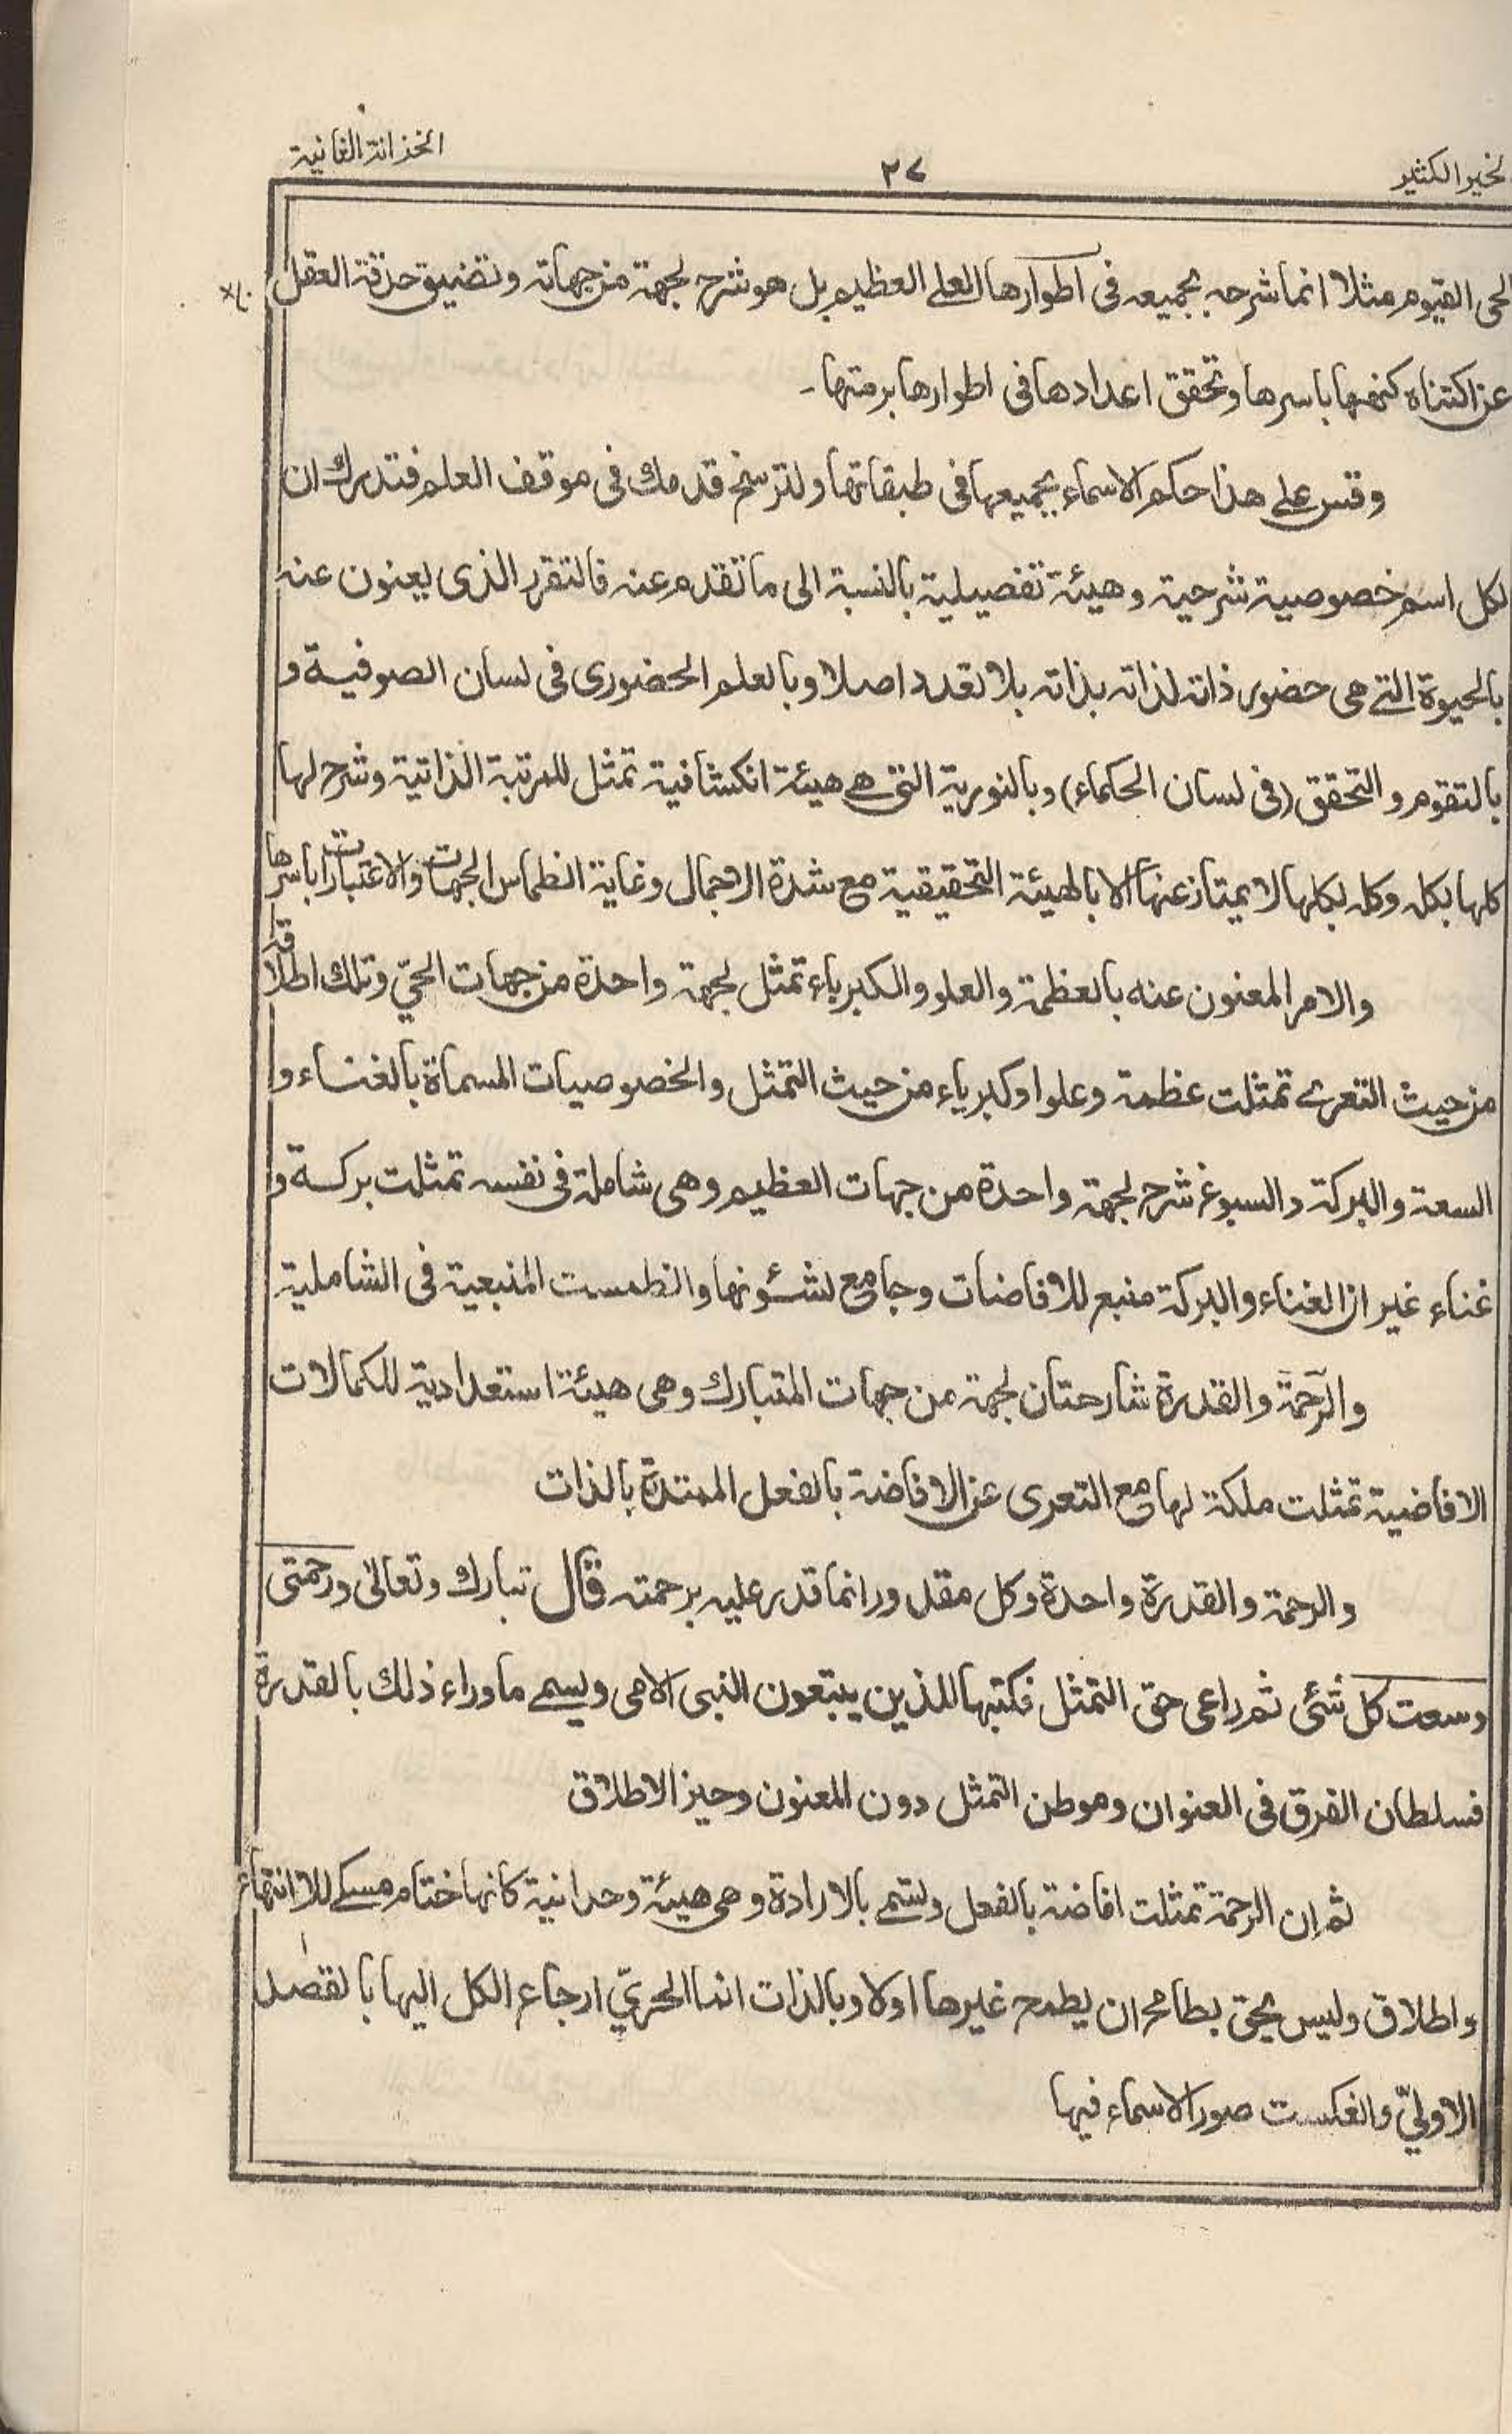 لخير الكثير
٢٧
الخزانة الثانية
الحى القيوم مثلا انما شرحه بجميعه فى اطوارها العلى العظيم بل هو شرح لجهة من جهاته وتضيق حدقة العقل
عن اكتناه كنهها باسرها وتحقق اعدادها فى اطوارها برمتها۔
وقس على هذا حكم الاسماء بجميعها فى طبقاتها ولترسخ قدمك فى موقف العلم فتدرك ان
لكل اسم خصوصية شرحية وهيئة تفصيلية بالنسبة الى ما تقدم عنه فالتقرر الذى يعنون عنه
بالحيوة التى هى حضور ذاته لذاته بذاته بلا تعدد اصلا وبالعلم الحضورى فى لسان الصوفية و
بالتقوم و التحقق (فى لسان الحكماء) وبالنورية التى هى هيئة انكشافية تمثل للمرتبة الذاتية وشرح لها
كلها بكله وكله بكلها لا يمتاز عنها الا بالهيئة التحقيقية مع شدة الاجمال وغاية انطماس الجهات والاعتبارات باسرها
والامر المعنون عنه بالعظمة والعلو والكبرياء تمثل لجهة واحدة من جهات الحيّ وتلك اطلاقه
من حيث التعرى تمثلت عظمة وعلوا وكبرياء من حيث التمثل والخصوصيات المسماة بالغناء و
السعة والبركة والسبوغ شرح لجهة واحدة من جهات العظيم وهى شاملة فى نفسه تمثلت بركة و
غناء غير ان الغناء والبركة منبع للافاضات وجامع لشئونها وانطمست المنبعية فى الشاملية
والرّحمة والقدرة شارحتان لجهة من جهات المتبارك وهى هيئة استعدادية للكمالات
الافاضية تمثلت ملكة لها مع التعرى عن الافاضة بالفعل الممتدة بالذات
والرحمة والقدرة واحدة وكل مقدور انما قدر عليه برحمته قال تبارك وتعالى ورحمتى
وسعت كل شئى ثم راعى حق التمثل فكتبها للذين يتبعون النبى الامى ويسمى ما وراء ذلك بالقدرة
فسلطان الفرق فى العنوان وموطن التمثل دون المعنون وحيز الاطلاق
ثم ان الرحمة تمثلت افاضة بالفعل وتسمى بالارادة وهى هيئة وحدانية كانها ختام مسكى للا انتهاء
و اطلاق وليس بحق بطامح ان يطمح غيرها اولا وبالذات انما الحرىّ ارجاع الكل اليها بالقصد
الاولىّ وانعكست صور الاسماء فيها